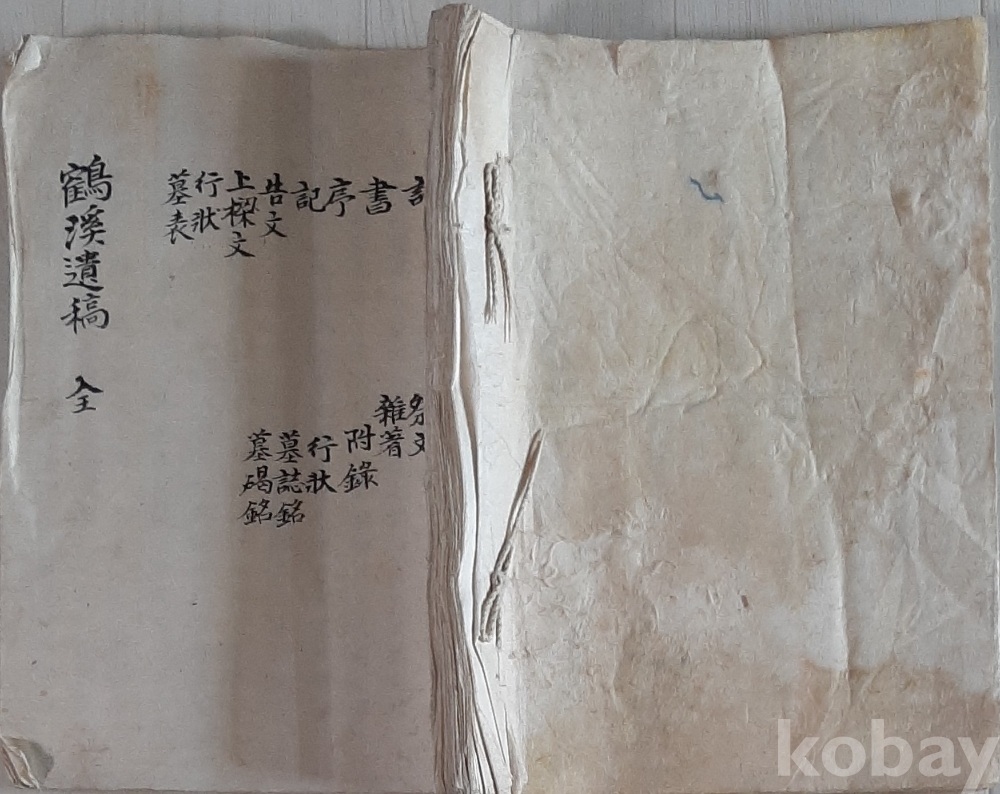 書
序
記
告文
上樑文
行狀
墓表
祭文
雜著
附錄
行狀
墓誌銘
墓碣銘
鶴溪遺稿 全
kobay